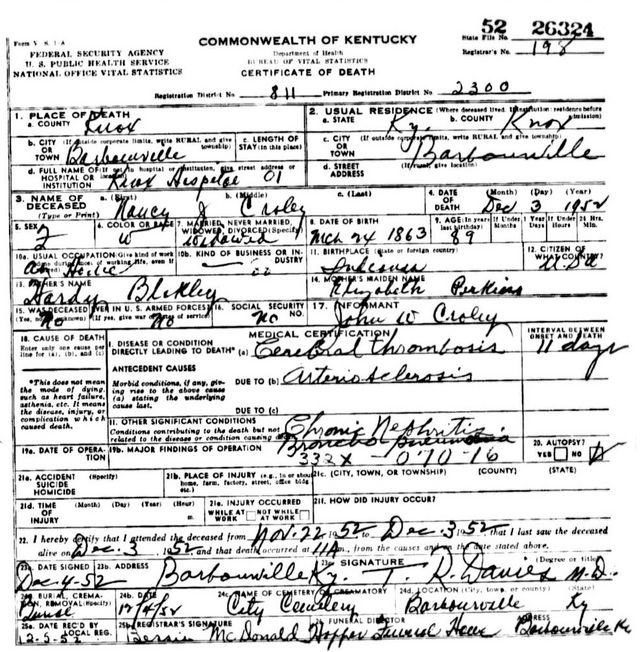 52 26324
Form V. S. 1-A
State File No.
FEDERAL SECURITY AGENCY
U. S. PUBLIC HEALTH SERVICE
NATIONAL OFFICE VITAL STATISTICS
COMMONWEALTH OF KENTUCKY
Department of Health
BUREAU OF VITAL STATISTICS
CERTIFICATE OF DEATH
Registrar's No. 198
Registration District No. 811 Primary Registration District No. 2300
1. PLACE OF DEATH
a. COUNTY Knox
2. USUAL RESIDENCE (Where deceased lived. If institution: residence before admission)
a. STATE Ky b. COUNTY Knox
b. CITY (If outside corporate limits, write RURAL and give township) OR TOWN Barbourville
c. LENGTH OF STAY (in this place)
c. CITY (If outside corporate limits, write RURAL and give township) OR TOWN Barbourville
d. FULL NAME OF (If not in hospital or institution, give street address or location) HOSPITAL OR INSTITUTION Knox Hospital 01
d. STREET ADDRESS (If rural, give location)
3. NAME OF DECEASED (Type or Print)
a. (First) b. (Middle) c. (Last)
Nancy J Croley
4. DATE OF DEATH (Month) (Day) (Year)
Dec 3 1952
5. SEX F
6. COLOR OR RACE W
7. MARRIED, NEVER MARRIED, WIDOWED, DIVORCED (Specify) Widowed
8. DATE OF BIRTH Mch 24 1863
9. AGE (In years last birthday) 89
If Under 1 Year Months Days If Under 24 Hrs. Hours Min.
10a. USUAL OCCUPATION (Give kind of work done during most of working life, even if retired) At Home
10b. KIND OF BUSINESS OR INDUSTRY
11. BIRTHPLACE (State or foreign country)
12. CITIZEN OF WHAT COUNTRY? USA
13. FATHER'S NAME Hardy
14. MOTHER'S MAIDEN NAME Elizabeth Perkins
15. WAS DECEASED EVER IN U. S. ARMED FORCES? (Yes, no, or unknown) (If yes, give war or dates of service) No No
16. SOCIAL SECURITY NO. No
17. INFORMANT John W Croley
18. CAUSE OF DEATH
Enter only one cause per line for (a), (b), and (c)
MEDICAL CERTIFICATION
INTERVAL BETWEEN ONSET AND DEATH
I. DISEASE OR CONDITION DIRECTLY LEADING TO DEATH* (a) Cerebral thrombosis 11 days
*This does not mean the mode of dying, such as heart failure, asthenia, etc. It means the disease, injury, or complication which caused death.
ANTECEDENT CAUSES
Morbid conditions, if any, giving rise to the above cause (a) stating the underlying cause last.
DUE TO (b) Arteriosclerosis
DUE TO (c)
II. OTHER SIGNIFICANT CONDITIONS
Conditions contributing to the death but not related to the disease or condition causing death.
Chronic Nephritis
Broncho Pneumonia
19a. DATE OF OPERATION
19b. MAJOR FINDINGS OF OPERATION
332X — 070-16
20. AUTOPSY?
YES NO
21a. ACCIDENT SUICIDE HOMICIDE
21b. PLACE OF INJURY (e.g., in or about home, farm, factory, street, office bldg., etc.)
21c. (CITY, TOWN, OR TOWNSHIP) (COUNTY) (STATE)
21d. TIME OF INJURY (Month) (Day) (Year) (Hour) m
21e. INJURY OCCURRED
WHILE AT WORK NOT WHILE AT WORK
21f. HOW DID INJURY OCCUR?
22. I hereby certify that I attended the deceased from Nov. 22 1952 to Dec. 3 1952 that I last saw the deceased
alive on Dec. 3 1952 and that death occurred at 11A m., from the causes and on the date stated above.
23a. DATE SIGNED Dec-4-52
23b. ADDRESS Barbourville Ky.
23c. SIGNATURE (Degree or title) T R Davies M.D.
24a. BURIAL, CREMATION, REMOVAL (Specify) Burial
24b. DATE 12/4/52
24c. NAME OF CEMETERY OR CREAMATORY City Cemetery
24d. LOCATION (City, town, or county) (State) Barbourville Ky
25a. DATE REC'D BY LOCAL REG. 12-5-52
25b. REGISTRAR'S SIGNATURE McDonald
26. FUNERAL DIRECTOR Hopper Funeral Home
ADDRESS Barbourville Ky